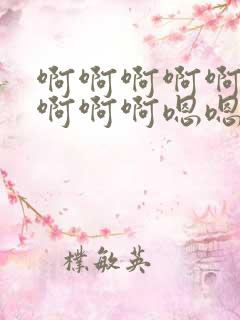 啊啊啊啊啊
啊啊啊嗯嗯
樸敏英